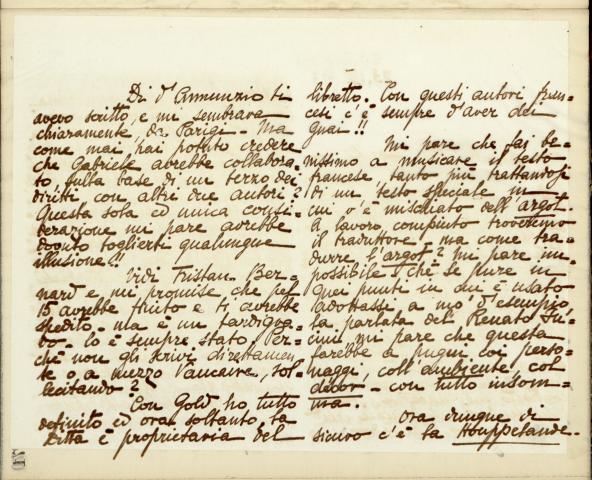 Di d'Annunzio ti
avevo scritto, e mi sembrava
chiaramente, da Parigi - Ma
come mai hai potuto credere
che Gabriele avrebbe collabora-
to, sulla base di un terzo dei
diritti con altri due autori?
Questa sola ed unica consi-
derazione mi pare avrebbe
dovuto toglierti qualunque
illusione!!
Vidi Tristan Ber-
nard e mi promise che pel
15 avrebbe finito e ti avrebbe
spedito - ma è un tardigra-
do - lo è sempre stato. Per-
chè non gli scrivi direttamen
te o a mezzo Vaucaire, sol-
lecitando?
Con Gold ho tutto
definito ed ora soltanto la
Ditta è proprietaria del
libretto. Con questi autori fran-
cesi c'è sempre d'aver dei
guai!!
Mi pare che fai be-
nissimo a musicare il testo
francese tanto più trattandosi
di un testo speciale in
cui v'è mischiato dell'argot.
A lavoro compiuto troveremo
il traduttore, ma come tra-
durre l'argot? mi pare im-
possibile, chè se pure in
quei punti in cui è usato
adottassi a mo' d'esempio
la parlata del Renato Fu-
cini mi pare che questa
farebbe a pugni coi perso-
naggi, coll'ambiente, col
decor - con tutto insom-
ma.
Ora dunque di
sicuro c'è la Houppelande -